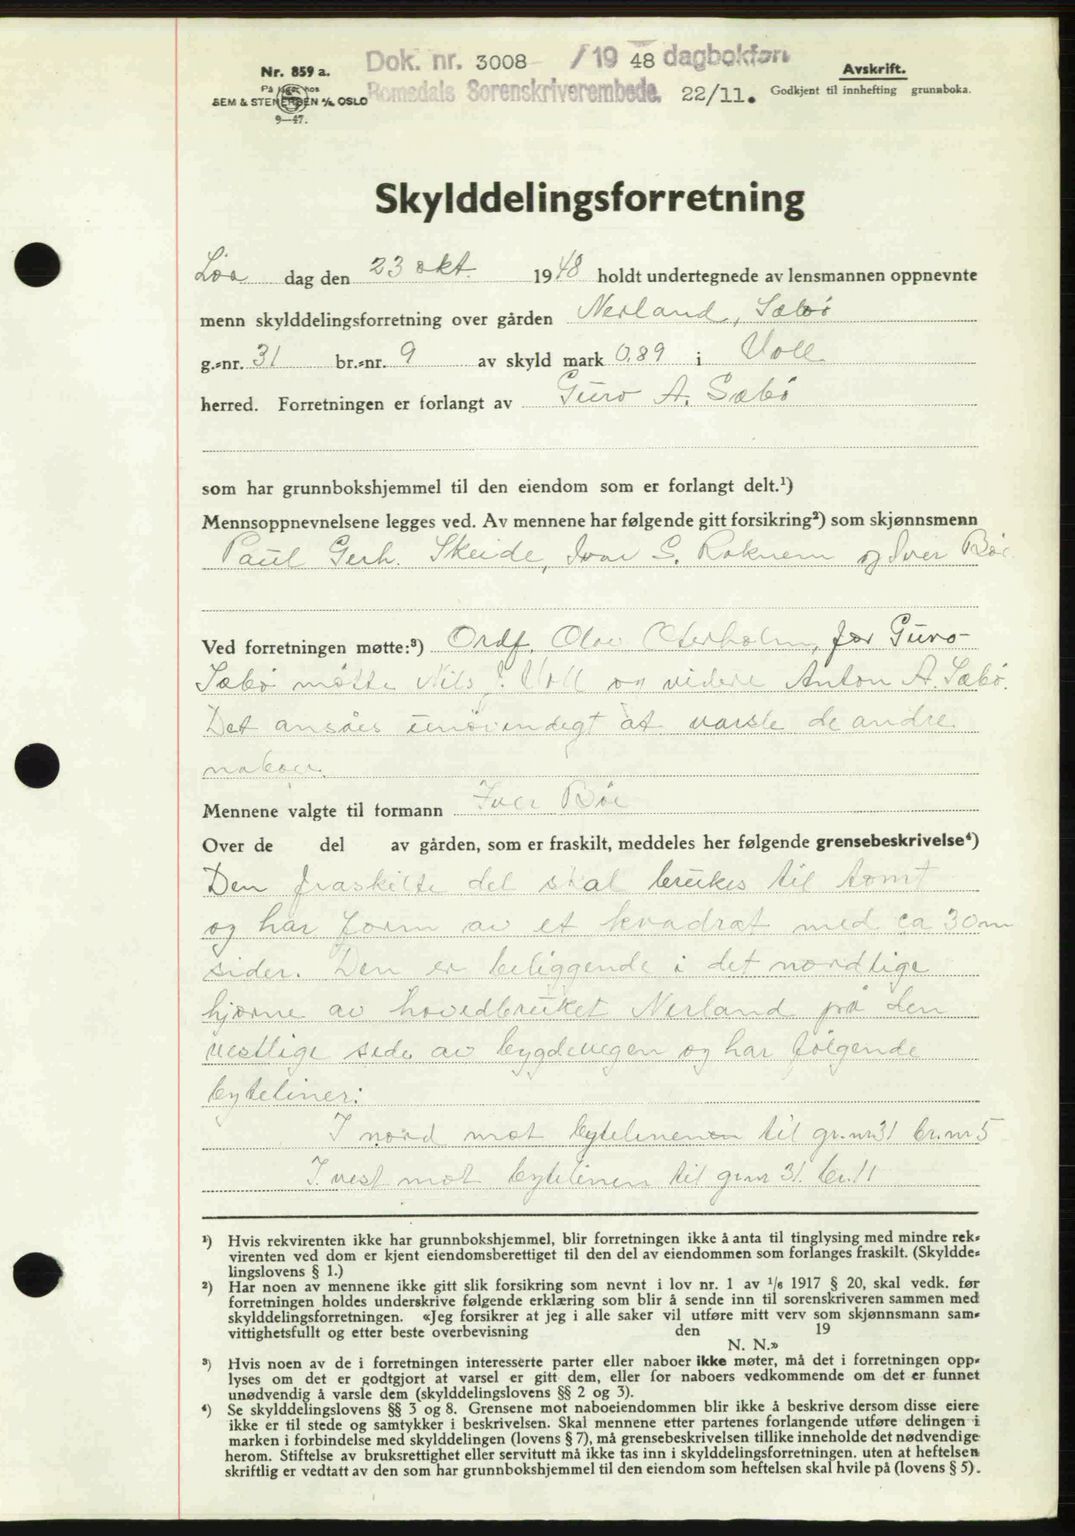 Dok. nr. 3008 /19 48 dagbokført
Romsdals Sorenskriverembede. 22/11.
Avskrift.
Godkjent til innhefting grunnboka.
Nr. 859 a.
På lager hos
SEM & STENERSEN A/S OSLO
9—47.
Skylddelingsforretning
Lør dag den 23 okt. 1948 holdt undertegnede av lensmannen oppnevnte
menn skylddelingsforretning over gården Nerland, Sæbø
g.-nr. 31 br.-nr. 9 av skyld mark 0,89 i Voll
herred. Forretningen er forlangt av Guro A. Sæbø
som har grunnbokshjemmel til den eiendom som er forlangt delt.¹)
Mennsoppnevnelsene legges ved. Av mennene har følgende gitt forsikring²) som skjønnsmenn
Paul Gerh. Skeide, Ivar S. Roknem og Iver Bøe.
Ved forretningen møtte:³) Ordf. Olav Oterholm, for Guro
Sæbø møtte Nils J. Voll og videre Anton A. Sæbø.
Det ansåes unødvendigt at varsle de andre
naboer.
Mennene valgte til formann Iver Bøe
Over de del av gården, som er fraskilt, meddeles her følgende grensebeskrivelse⁴)
Den fraskilte del skal brukes til tomt
og har form av et kvadrat med ca 30 m
sider. Den er beliggende i det nordlige
hjørne av hovedbruket Nerland på den
vestlige side av bygdevegen og har følgende
byteliner:
I nord mot bytelinenen til gr.nr 31 br.nr 5
I vest mot bytelinen til gr.nr 31. br. 11
¹) Hvis rekvirenten ikke har grunnbokshjemmel, blir forretningen ikke å anta til tinglysing med mindre rek-
virenten ved dom er kjent eiendomsberettiget til den del av eiendommen som forlanges fraskilt. (Skyldde-
lingslovens § 1.)
²) Har noen av mennene ikke gitt slik forsikring som nevnt i lov nr. 1 av 1/6 1917 § 20, skal vedk. før
forretningen holdes underskrive følgende erklæring som blir å sende inn til sorenskriveren sammen med
skylddelingsforretningen. «Jeg forsikrer at jeg i alle saker vil utføre mitt verv som skjønnsmann sam-
vittighetsfullt og etter beste overbevisning den 19
N. N.»
³) Hvis noen av de i forretningen interesserte parter eller naboer ikke møter, må det i forretningen opp-
lyses om det er godtgjort at varsel er gitt dem, eller for naboers vedkommende om det er funnet
unødvendig å varsle dem (skylddelingslovens §§ 2 og 3).
⁴) Se skylddelingslovens §§ 3 og 8. Grensene mot naboeiendommen blir ikke å beskrive dersom disse eiere
ikke er til stede og samtykker i beskrivelsen. Skal mennene etter partenes forlangende utføre delingen i
marken i forbindelse med skylddelingen (lovens § 7), må grensebeskrivelsen tillike inneholde det nødvendige
herom. Stiftelse av bruksrettighet eller servitutt må ikke tas inn i skylddelingsforretningen, uten at heftelsen
skriftlig er vedtatt av den som har grunnbokshjemmel til den eiendom som heftelsen skal hvile på (lovens § 5).